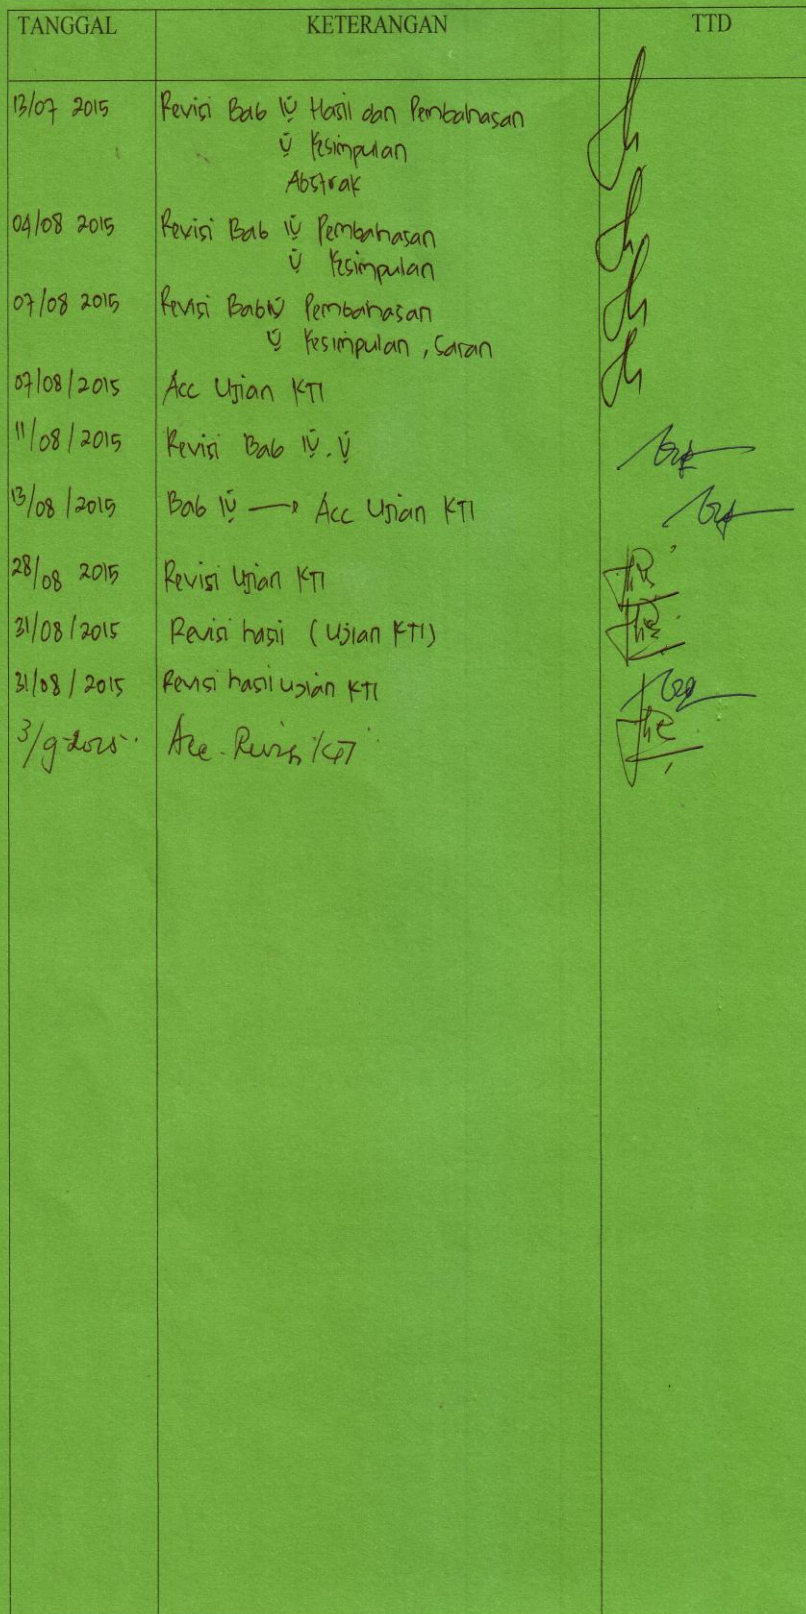 TANGGAL KETERANGAN TTD
13/07 2015 Revisi Bab IV Hasil dan Pembahasan
V Kesimpulan
Abstrak
04/08 2015 Revisi Bab IV Pembahasan
V Kesimpulan
07/08 2015 Revisi Bab IV Pembahasan
V Kesimpulan, Saran
07/08/2015 Acc Ujian KTI
11/08/2015 Revisi Bab IV. V
13/08/2015 Bab IV → Acc Ujian KTI
28/08 2015 Revisi Ujian KTI
31/08/2015 Revisi hasil (Ujian KTI)
31/08/2015 Revisi hasil ujian KTI
3/9-2015. Acc Revisi KTI